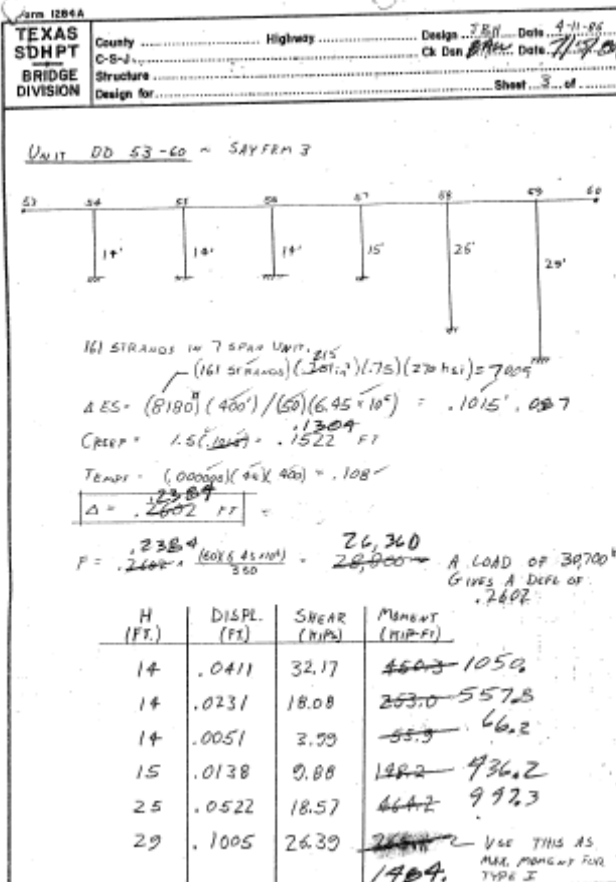 Form 1284A
TEXAS SDHPT BRIDGE DIVISION
County Highway Design JBH Date 4-11-86
C-S-J Ck Dsn Date
Structure
Design for Sheet 3 of
UNIT DD 53-60 ~ SAY FRM 3
53 54 55 56 57 58 59 60
14' 14' 14' 15' 25' 29'
161 STRANDS IN 7 SPAN UNIT.
.215
(161 STRANDS)(.201in²)(.75)(270 ksi) = 7005
Δ ES = (8180)(400')/(50)(6.45×10⁴) = .1015' .087
.1304
CREEP = 1.5(.1015) = .1522 FT
TEMP = (.000006)(45)(400) = .108
.2384
Δ = .2602 FT =
.2384 26,360
F = .2602 × (60)(6.45×10⁴)/350 = 28,800 A LOAD OF 30,700k
GIVES A DEFL OF
.2602
H DISPL. SHEAR MOMENT
(FT.) (FT.) (KIPS) (KIP-FT)
14 .0411 32.17 450.3 1050.
14 .0231 18.08 253.0 557.8
14 .0051 3.99 55.9 66.2
15 .0138 9.88 148.2 436.2
25 .0522 18.57 464.2 997.3
29 .1005 26.39 USE THIS AS
MAX. MOMENT FOR
1484. TYPE I